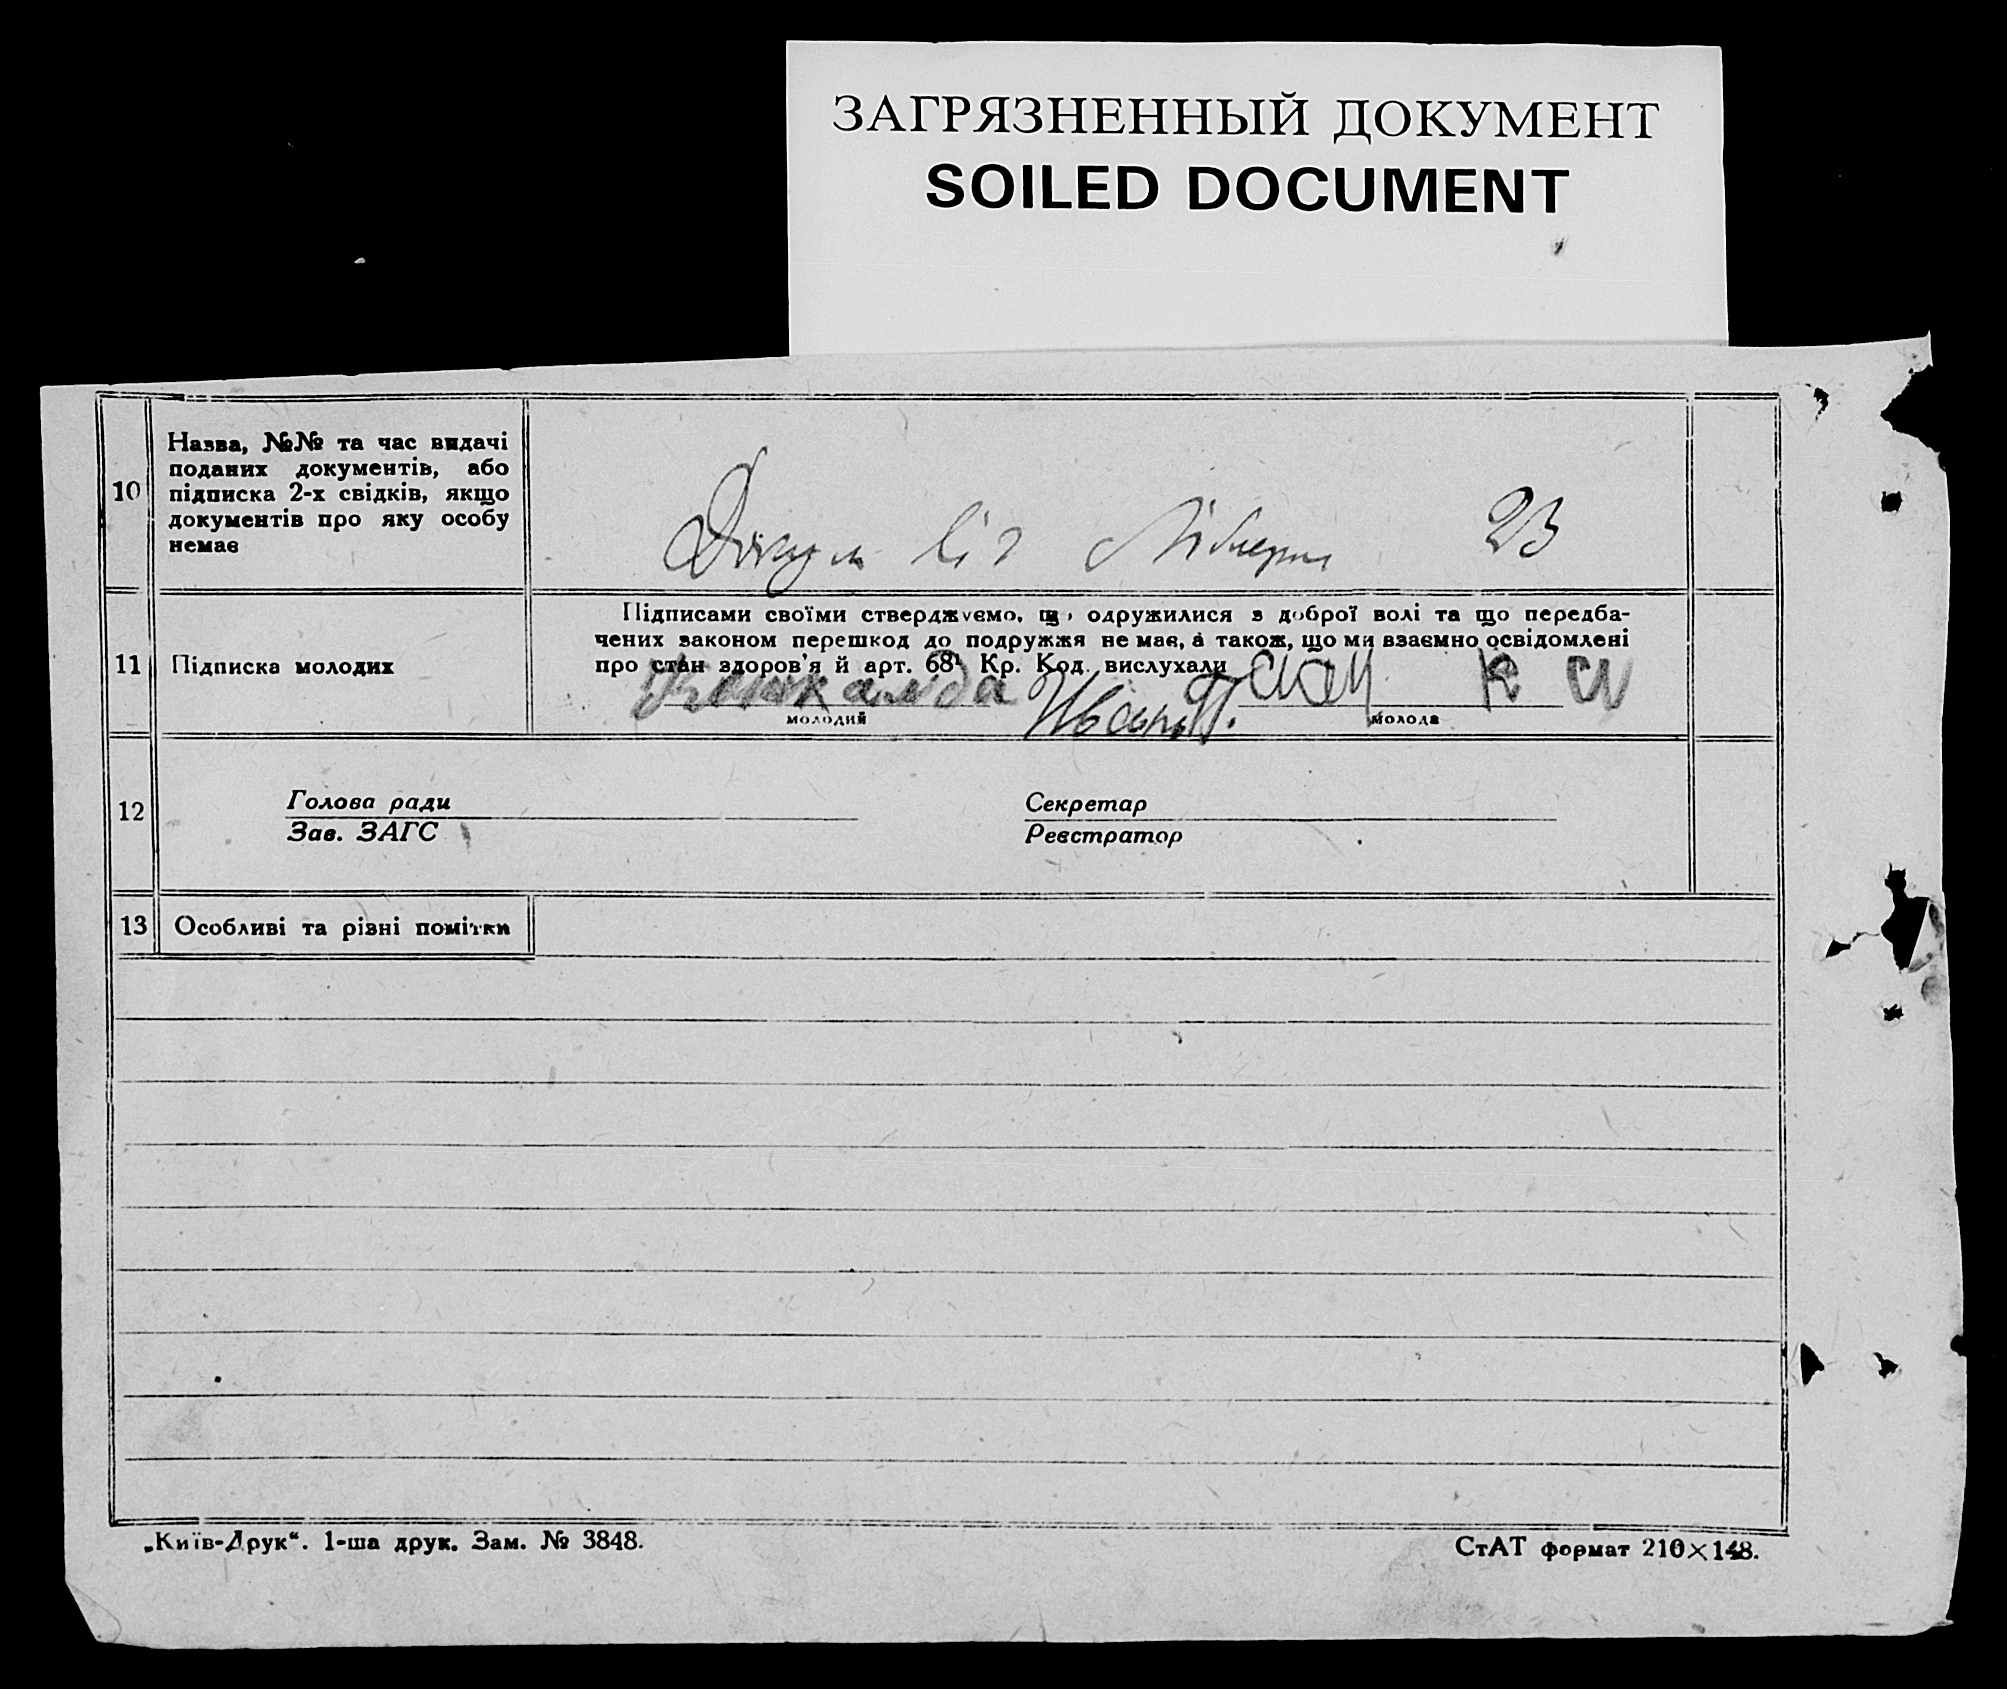 ЗАГРЯЗНЕННЫЙ ДОКУМЕНТ
SOILED DOCUMENT
10
Назва, №№ та час видачі
поданих документів, або
підписка 2-х свідків, якщо
документів про яку особу
немає
від 23
11
Підписка молодих
Підписами своїми стверджуємо, що одружилися з доброї волі та що передба-
чених законом перешкод до подружжя не має, а також, що ми взаємно освідомлені
про стан здоров'я й арт. 68¹ Кр. Код. вислухали
молодий
молода
12
Голова ради
Зав. ЗАГС
Секретар
Реєстратор
13
Особливі та різні помітки
„Київ-Друк“. 1-ша друк. Зам. № 3848.
СтАТ формат 210×148.